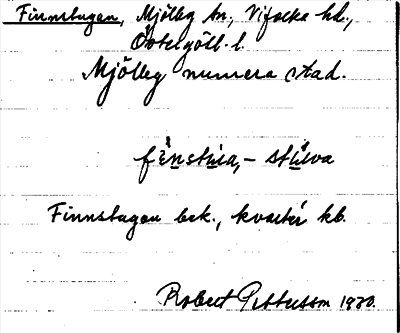 Finnstugan, Mjölby sn, Vifolka hd.,
Östergötl. l.
Mjölby numera stad.
fènstúa, – stúwa
Finnstugan bek., kvarter kb.
Robert Pettersson 1930.